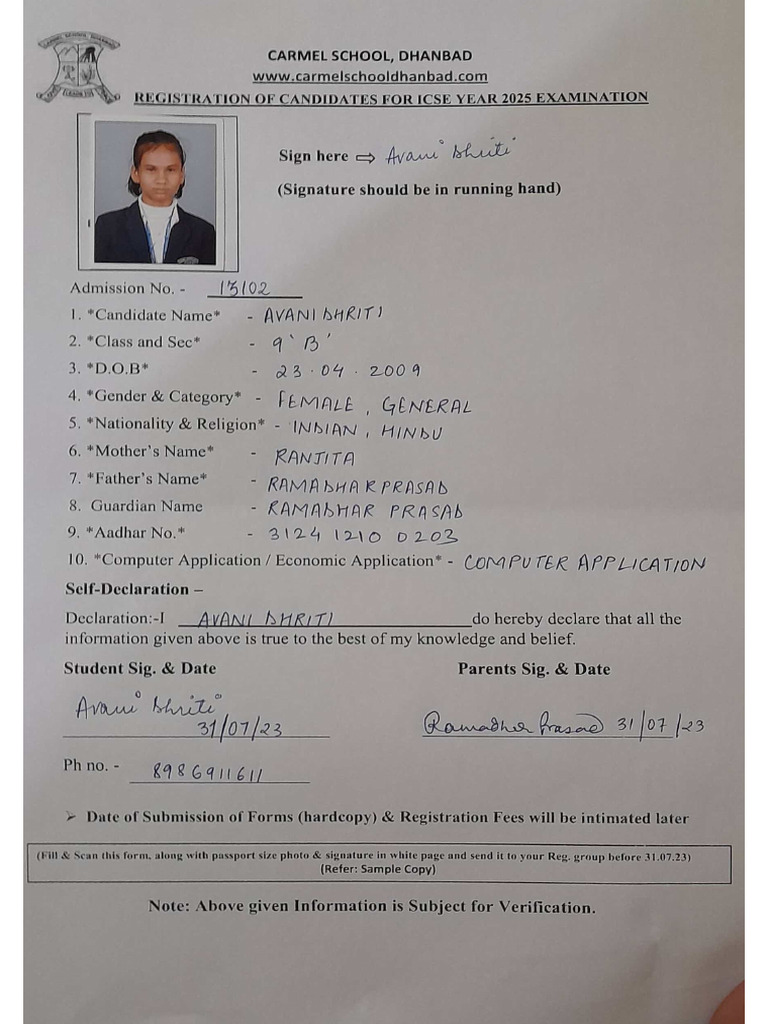 CARMEL SCHOOL, DHANBAD
CARMEL SCHOOL, DHANBAD
www.carmelschooldhanbad.com
REGISTRATION OF CANDIDATES FOR ICSE YEAR 2025 EXAMINATION
Sign here ⇨ Avani Dhriti
(Signature should be in running hand)
Admission No. - 13102
1. *Candidate Name* - AVANI DHRITI
2. *Class and Sec* - 9 'B'
3. *D.O.B* - 23.04.2009
4. *Gender & Category* - FEMALE, GENERAL
5. *Nationality & Religion* - INDIAN, HINDU
6. *Mother's Name* - RANJITA
7. *Father's Name* - RAMADHAR PRASAD
8. Guardian Name - RAMADHAR PRASAD
9. *Aadhar No.* - 3124 1210 0203
10. *Computer Application / Economic Application* - COMPUTER APPLICATION
Self-Declaration –
Declaration:-I AVANI DHRITI do hereby declare that all the
information given above is true to the best of my knowledge and belief.
Student Sig. & Date Parents Sig. & Date
Avani Dhriti
31/07/23 Ramadhar Prasad 31/07/23
Ph no. - 8986911611
➢ Date of Submission of Forms (hardcopy) & Registration Fees will be intimated later
(Fill & Scan this form, along with passport size photo & signature in white page and send it to your Reg. group before 31.07.23)
(Refer: Sample Copy)
Note: Above given Information is Subject for Verification.